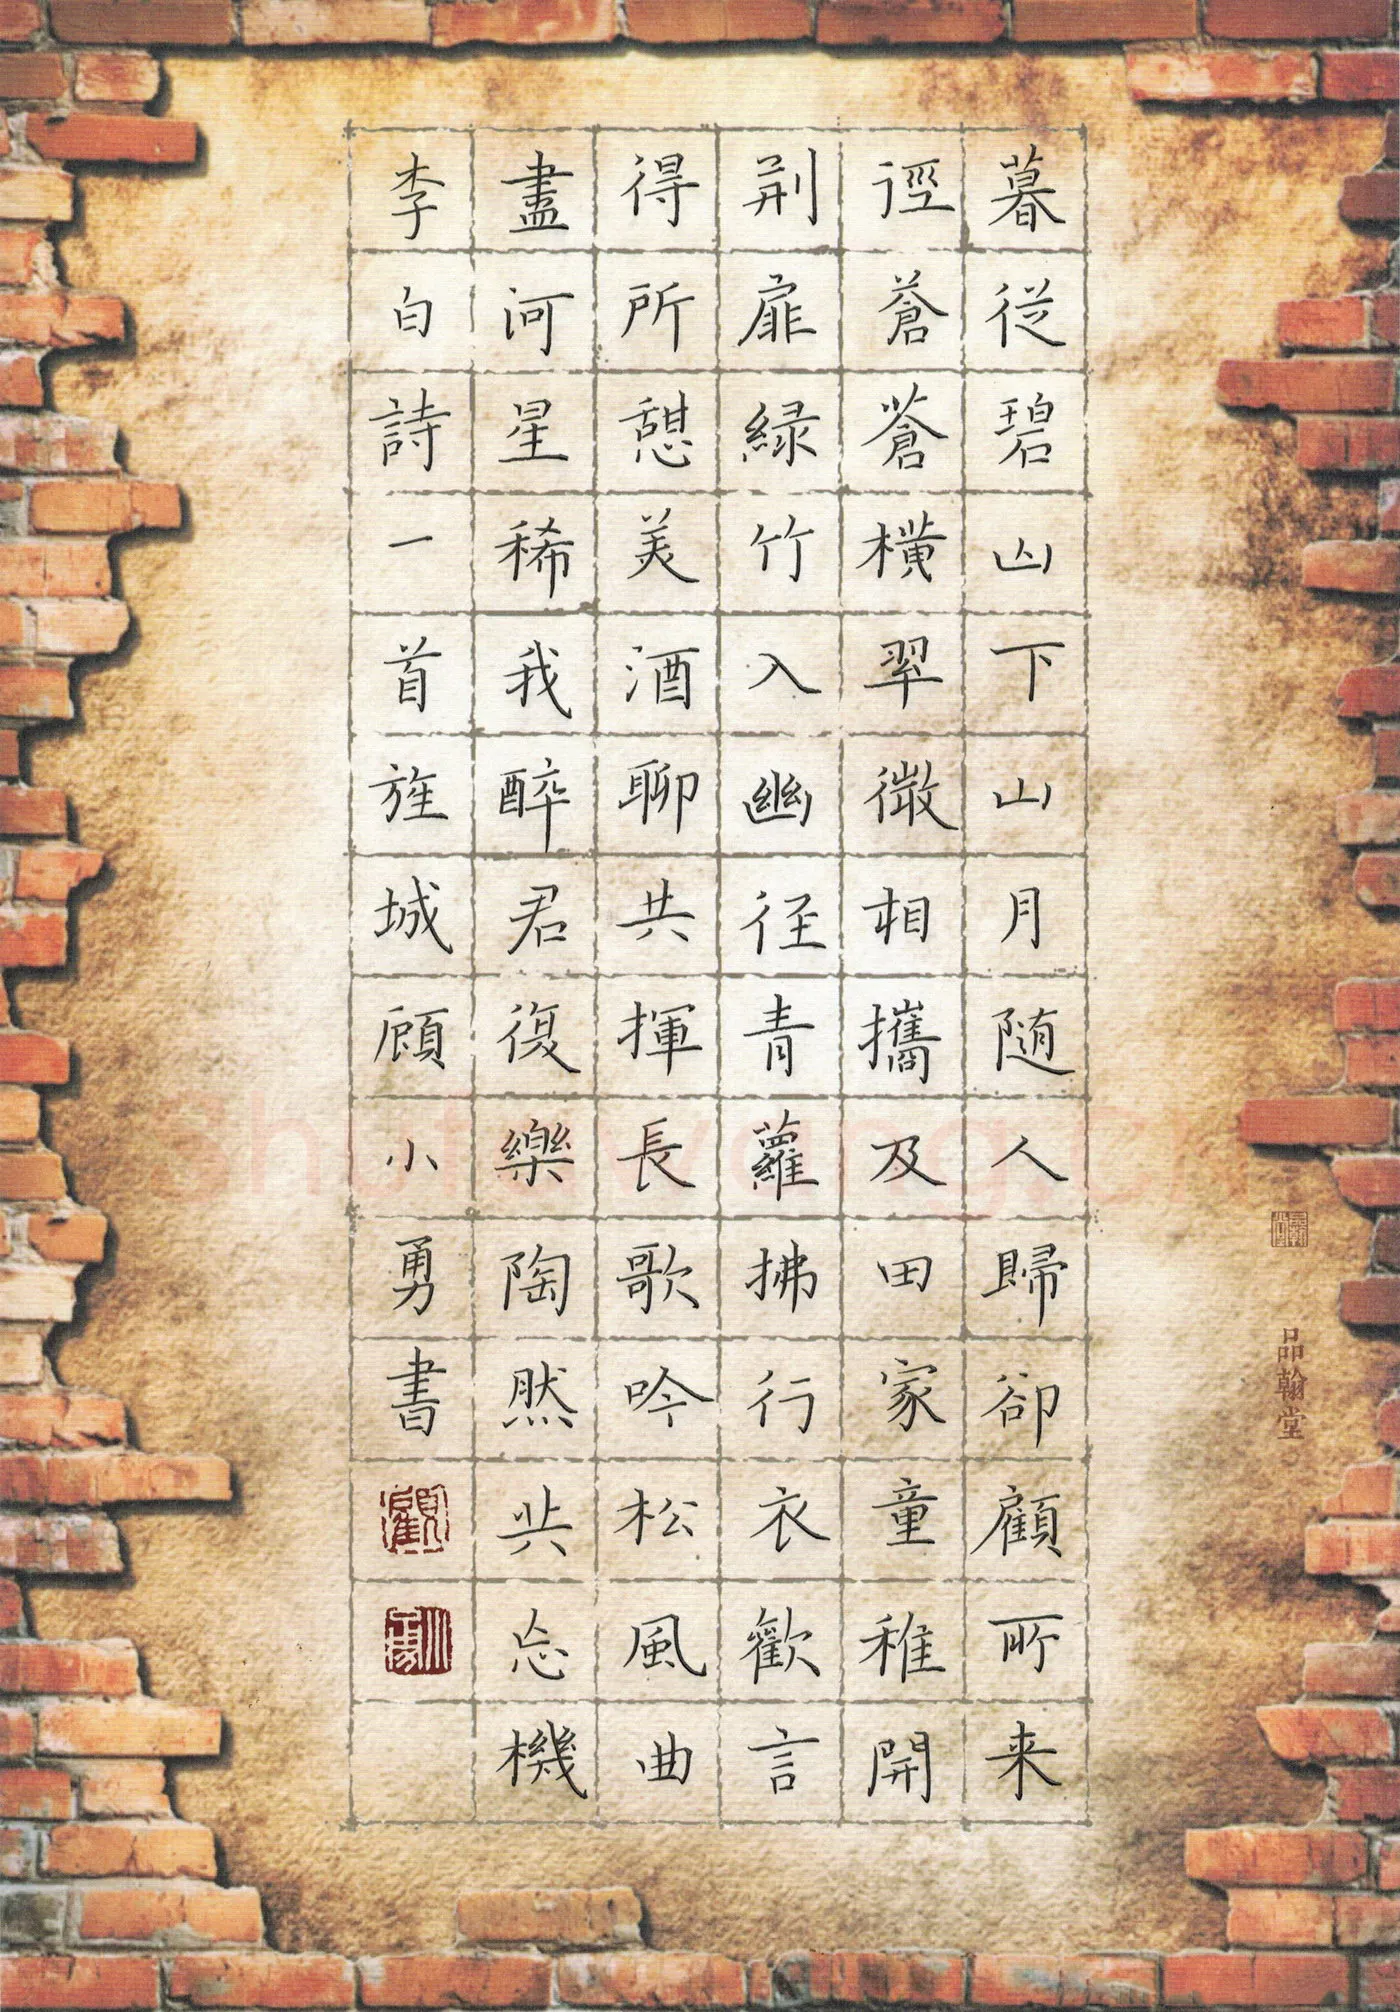 暮從碧山下山月随人歸卻顧所来
徑蒼蒼橫翠微相攜及田家童稚開
荆扉緑竹入幽徑青蘿拂行衣歡言
得所憩美酒聊共揮長歌吟松風曲
盡河星稀我醉君復樂陶然共忘機
李白詩一首旌城顧小勇書
品翰堂